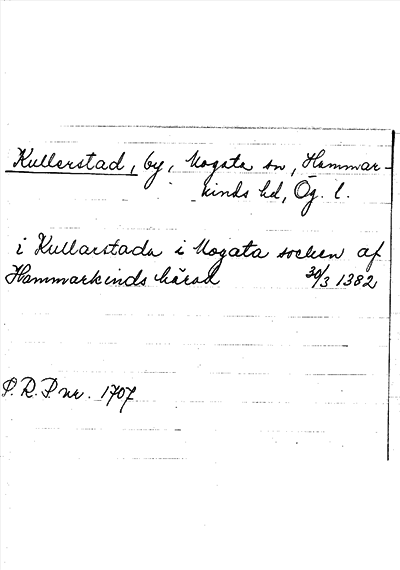 Kullerstad, by, Mogata sn, Hammar-
kinds hd, Ög. l.
i Kullarstada i Mogata socken af
Hammarkinds härad 30/3 1382
P.R.P nr. 1707